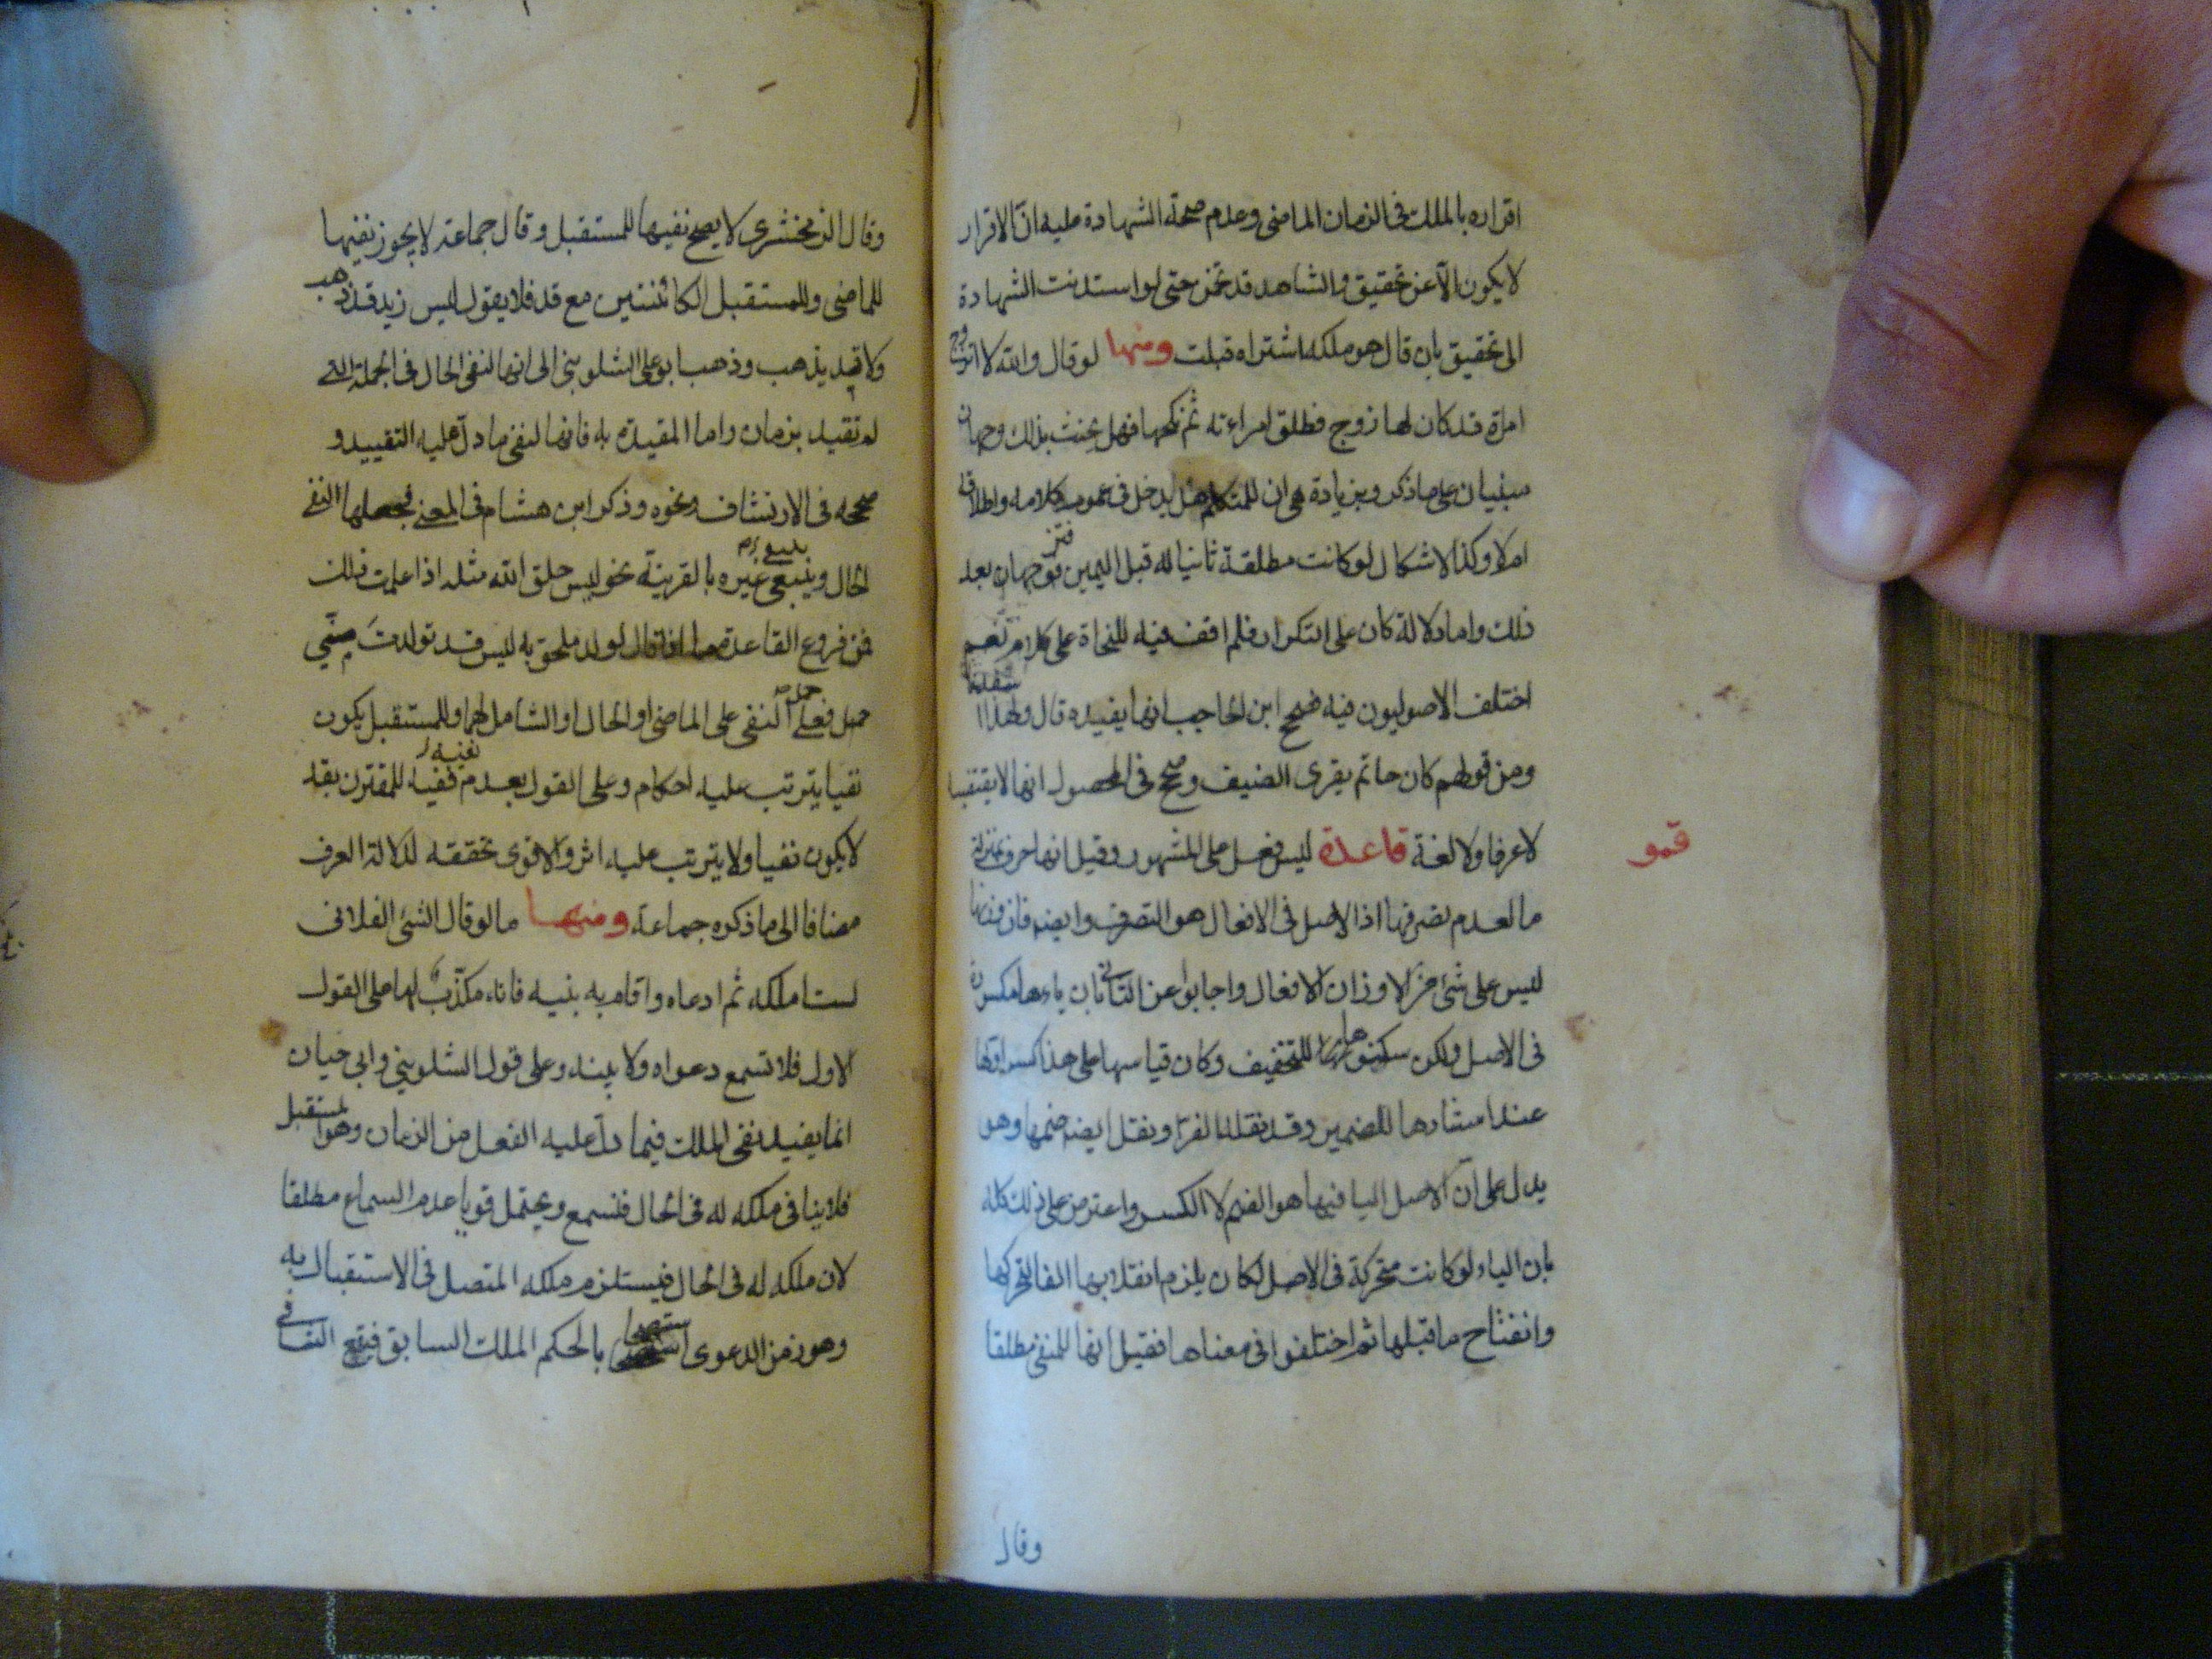 اقراره بالملك فى الزمان الماضى وعدم صحة الشهادة عليه انّ الاقرار
لا يكون الّا عن تحقيق والشاهد قد تخن حتى لو استدنت الشهادة
الى تحقيق بان قال هو ملكه اشتراه قبلت ومنها لو قال والله لا اتزوج
امراة قد كان لها زوج فطلق امراءته ثم نكحها فهل يحنث بذلك وجهان
مبنيان على ما ذكر وبزيادة هى ان المتكلم هل يدخل فى عموم كلامه واطلاقه
ام لا وكذا الاشكال لو كانت مطلقة ثانيا له قبل اليمين فوجهان بعد
ذلك واما دلالة كان على التكرار فلم اقف فيه للنحاة على كلام نعم
اختلف الاصوليون فيه فصحح ابن الحاجب انها يفيده قال ولهذا
ومن قولهم كان حاتم يقرى الضيف وصحح فى المحصول انها لا يقتضيه
قمو
لا عرفا ولا لغة قاعدة ليس فعل على المشهور وقيل انها حرف بمنزلة
ما لعدم تصرفها اذ الاصل فى الافعال هو التصرف وايضه فان
ليس على شئ من الاوزان الافعال واجابوا عن الثانى بان ياءها مكسورة
فى الاصل ولكن سكنوها للتخفيف وكان قياسها على هذا كسر اولها
عند اسنادها للضمير وقد نقله الفرّا ونقل ايضه ضمها وهو
يدل على ان الاصل اليا فيها هو الضم لا الكسر واعترض على ذلك كله
بان الياء لو كانت متحركة فى الاصل لكان يلزم انقلابها الفا لتحركها
وانفتاح ما قبلها ثم اختلفوا فى معناها فقيل انها للنفى مطلقا
وقال
وقال الزمخشرى لا يصح نفيها للمستقبل وقال جماعة لا يجوز نفيها
للماضى وللمستقبل الكائنتين مع قد فلا يقول ليس زيد قد ذهب
ولا قد يذهب وذهب ابو على الشلوبنى الى انها لنفى الحال فى الجملة التى
لم تقيد بزمان واما المقيدة به فانها لنفى ما دل عليه التقييد و
صححه فى الارتشاف ونحوه وذكر ابن هشام فى المغنى فجعلها النفى
الحال وينبغى غيره بالقرينة نحو ليس خلق الله مثله اذا علمت ذلك
فمن فروع القاعدة ما اذا قال لولد ملحق به ليس قد تولدت منّي
حمل فعلى النفى على الماضى او الحال او الشامل لهما وللمستقبل يكون
نفيا يترتب عليه احكام وعلى القول بعدم نفيه للمقترن بقد
لا يكون نفيا ولا يترتب عليه اثر والاقوى تحققه لدلالة العرف
مضافا الى ما ذكره جماعة ومنها ما لو قال الشئ الفلانى
لست املكه ثم ادعاه واقام به بنيه فانه مكذّب لها على القول
الاول فلا تسمع دعواه ولا بينه وعلى قول الشلوبني وابي حيان
انما يفيد نفى الملك فيما دل عليه الفعل من الزمان وهو المستقبل
فلا ينافى ملكه له فى الحال فتسمع ويحتمل قويا عدم السماع مطلقا
لان ملكه له فى الحال فيستلزم ملكه المتصل فى الاستقبال به
وهو زمن الدعوى بالحكم الملك السابق فيقع التنافى